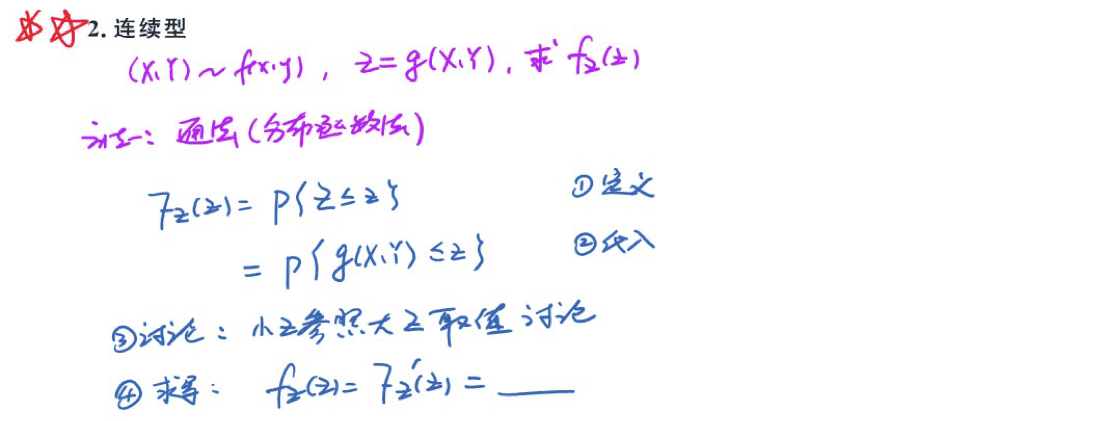 2. 连续型
(X,Y)~f(x,y), Z=g(X,Y), 求 f_Z(z)
方法一: 通法(分布函数法)
F_Z(z)= P{Z≤z} ①定义
= P{g(X,Y)≤z} ②代入
③讨论: 小z参照大Z取值讨论
④求导: f_Z(z)= F_Z'(z) = ____